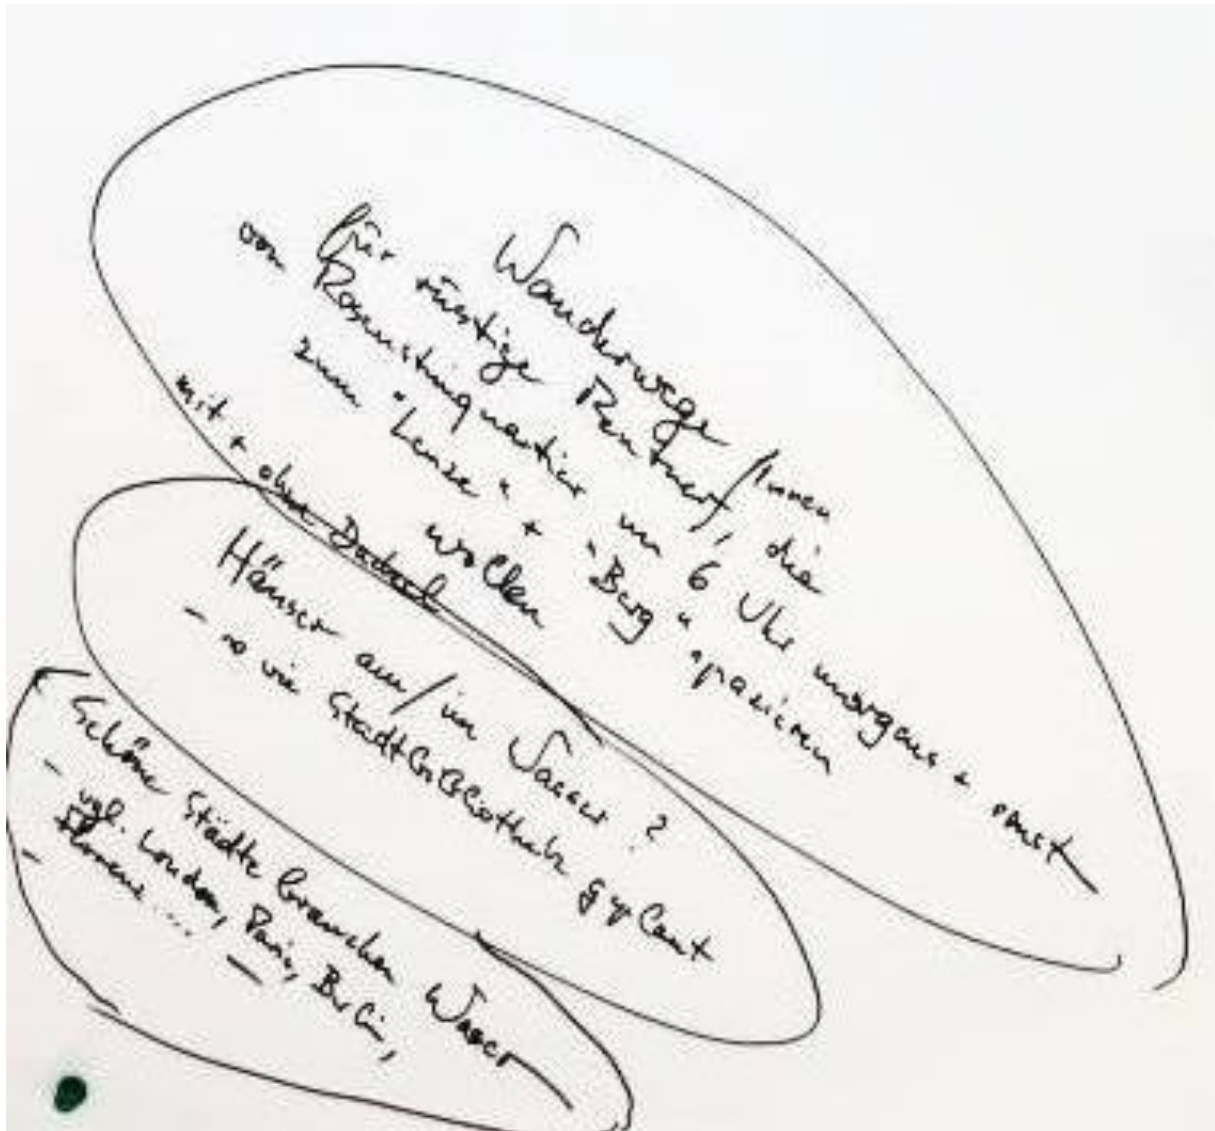 Wanderwege
für rüstige Rentner/Innen, die
vom Rosensteinquartier um 6 Uhr morgens + sonst
zum "Leuze" + "Berg" spazieren
wollen
mit + ohne Dackel
Häuser am/im Wasser?
- so wie Stadtbibliothek geplant
Schöne Städte brauchen Wasser
- vgl. London, Paris, Berlin,
Florenz ....